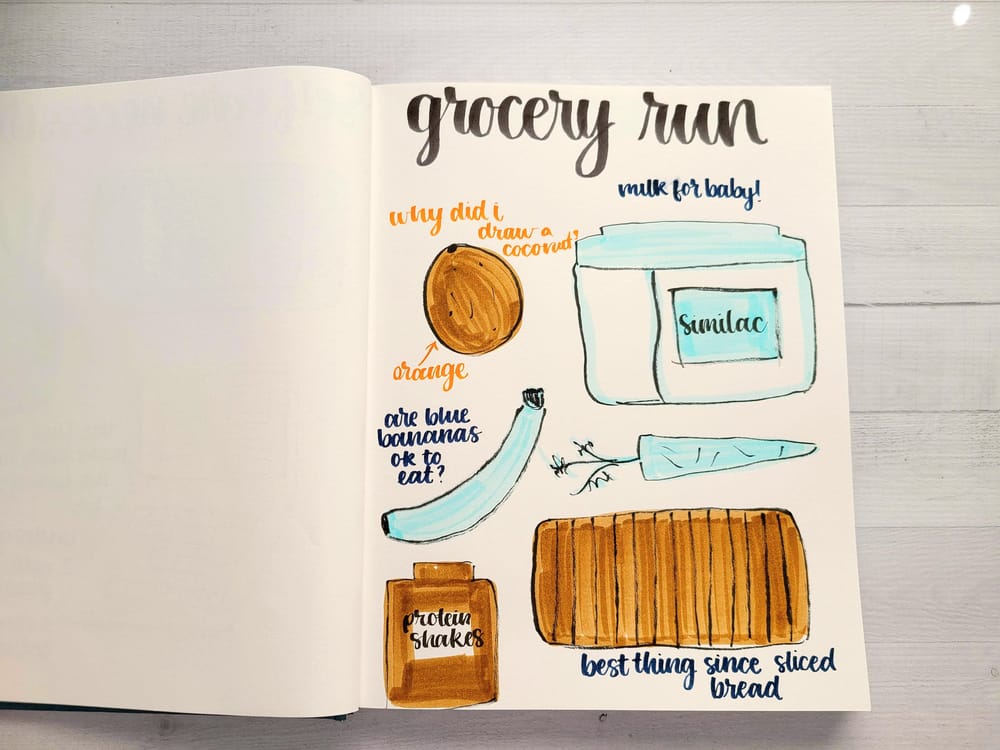 grocery run
milk for baby!
why did i
draw a
coconut?
similac
orange
are blue
bananas
ok to
eat?
protein
shakes
best thing since sliced
bread